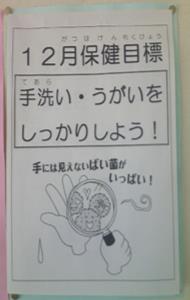 がつほけんもくひょう
12月保健目標
てあら
手洗い・うがいを
しっかりしよう！
手には見えないばい菌が
いっぱい！